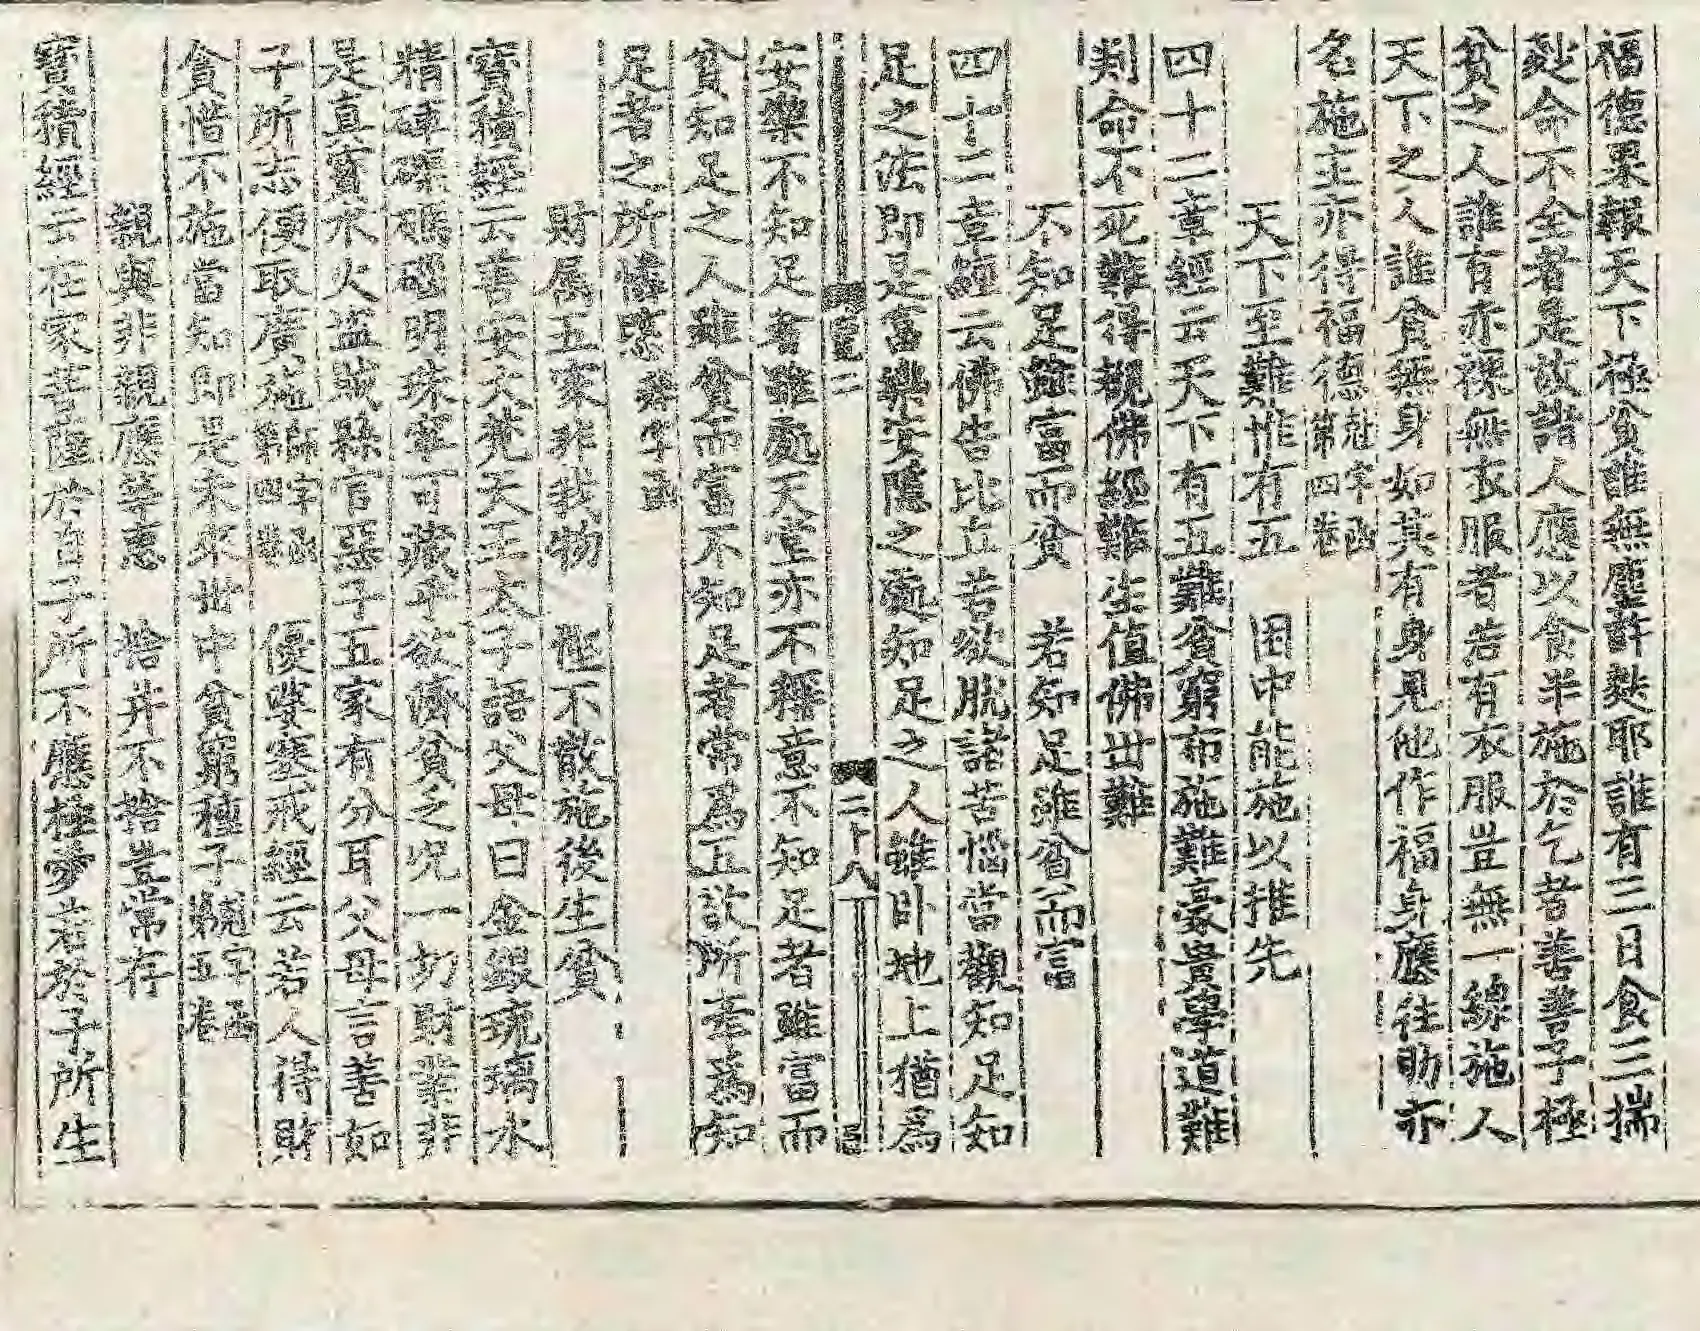 福德果報天下極貧誰無塵許麨耶誰有三日食三揣
麨命不全者是故諸人應以食半施於乞者善善子極
貧之人誰有赤裸無衣服者若有衣服豈無一線施人
天下之人誰貧無身如其有身見他作福身應往助亦
名施主亦得福德 尅字函第四卷
天下至難惟有五　因中能施以推先
四十二章經云天下有五難貧窮布施難豪貴學道難
判命不死難得覩佛經難生值佛世難
不知足雖富而貧　若知足雖貧而富
四十二章經云佛告比丘若欲脫諸苦惱當觀知足知
足之法即是富樂安隱之處知足之人雖卧地上猶為
二 二十八
安樂不知足者雖處天堂亦不稱意不知足者雖富而
貧知足之人雖貧而富不知足者常為五欲所牽為知
足者之所憐愍 字函
財属五家非我物　慳不散施後生貧
寶積經云善安大梵天王太子語父母曰金銀琉璃水
精硨磲碼碯明珠寧可藏乎欲濟貧乏况一切財業非
是真實水火盜賊縣官惡子五家有分耳父母言善如
子所志便取廣施 字函四卷　優婆塞戒經云若人得財
貪惜不施當知即是未來世中貧窮種子 字函五卷
親與非親應等惠　捨井不捨豈常存
寶積經云在家菩薩於自子所不應極愛若於子所生